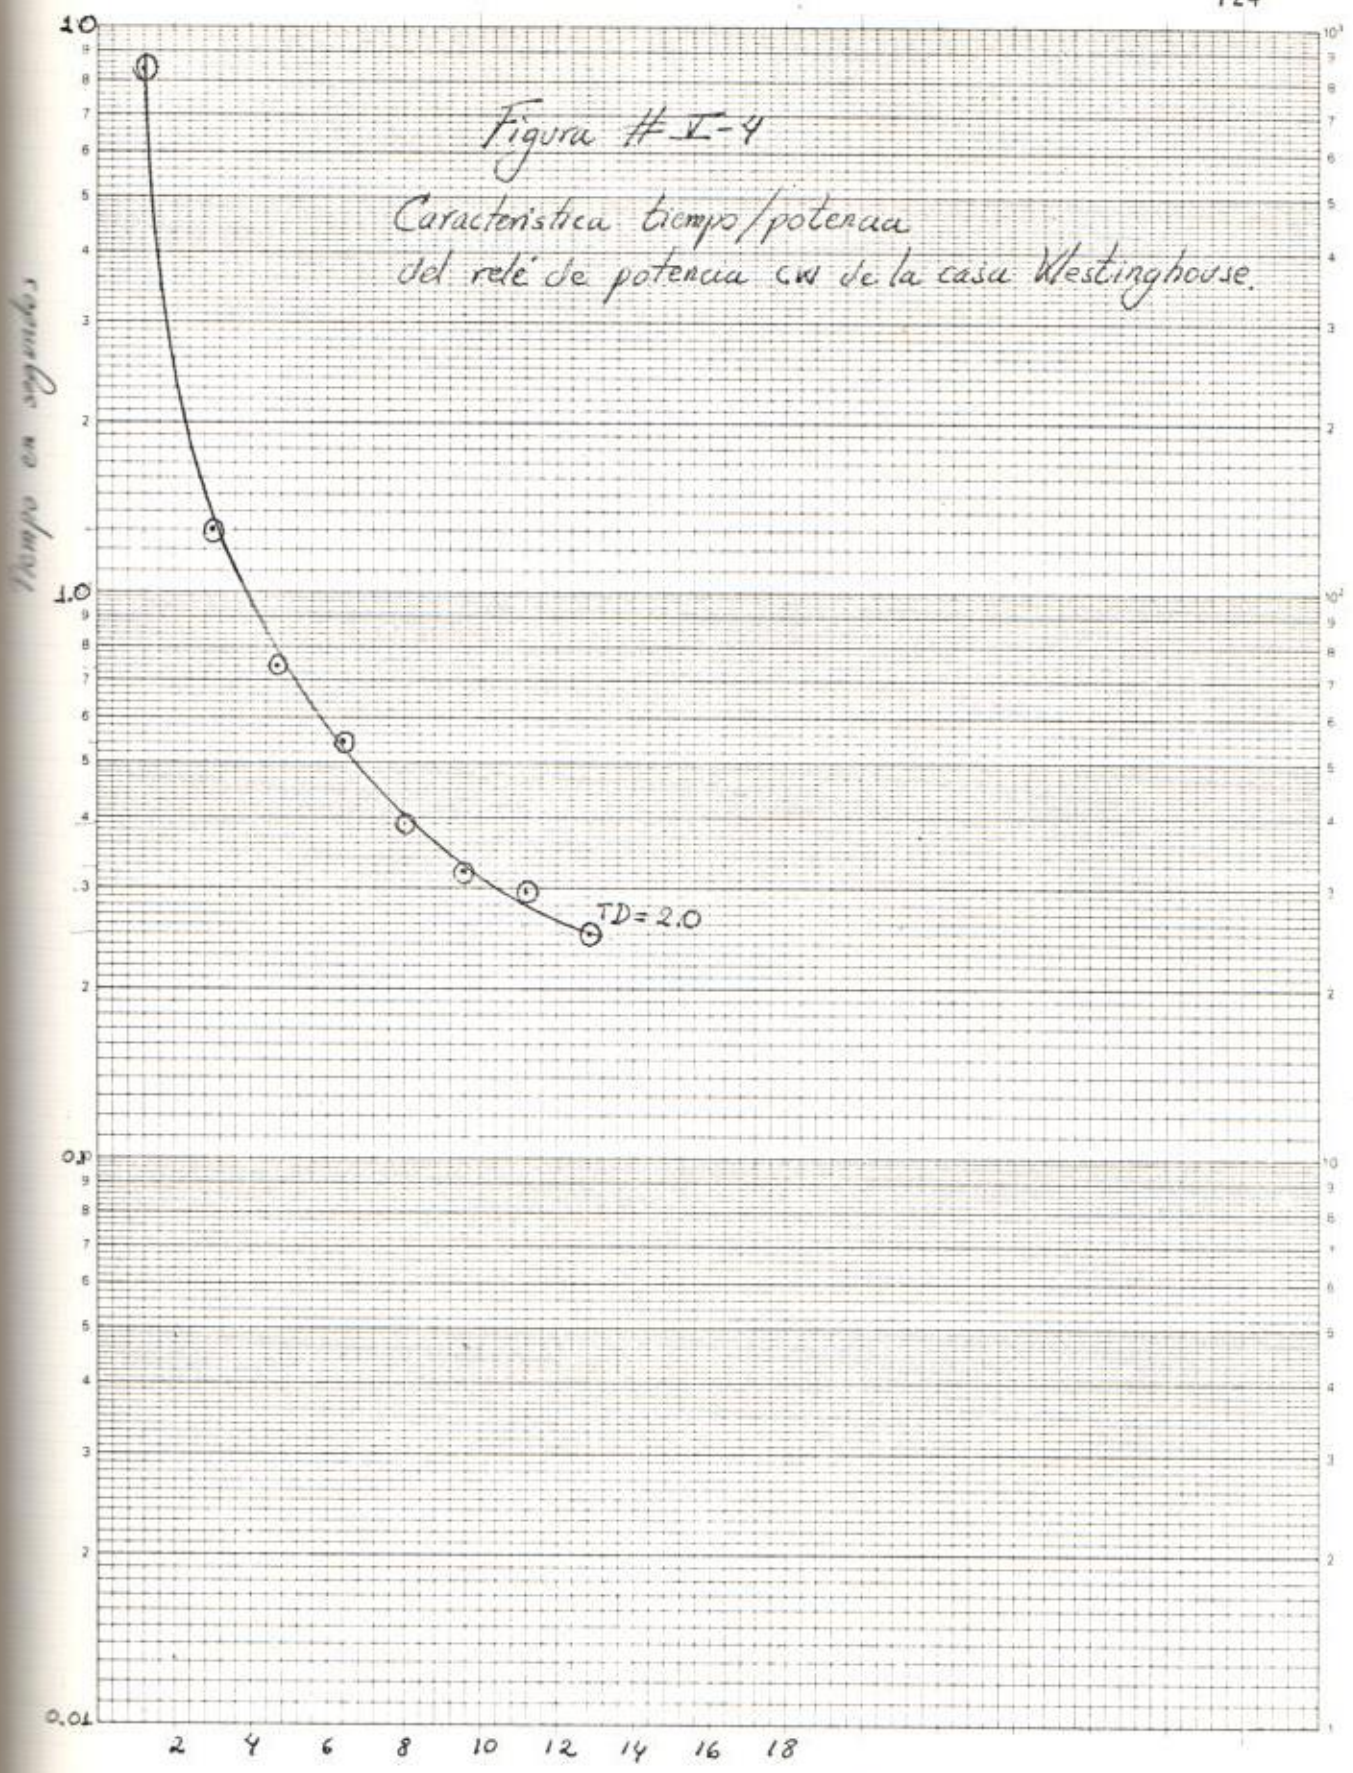 124
Figura # V-4
Característica tiempo/potencia
del relé de potencia CW de la casa Westinghouse.
Tiempo en segundos
10
9
8
7
6
5
4
3
2
1.0
9
8
7
6
5
4
3
2
0.1
9
8
7
6
5
4
3
2
0.01
10³
9
8
7
6
5
4
3
2
10²
9
8
7
6
5
4
3
2
10
9
8
7
6
5
4
3
2
1
TD=2.0
2 4 6 8 10 12 14 16 18